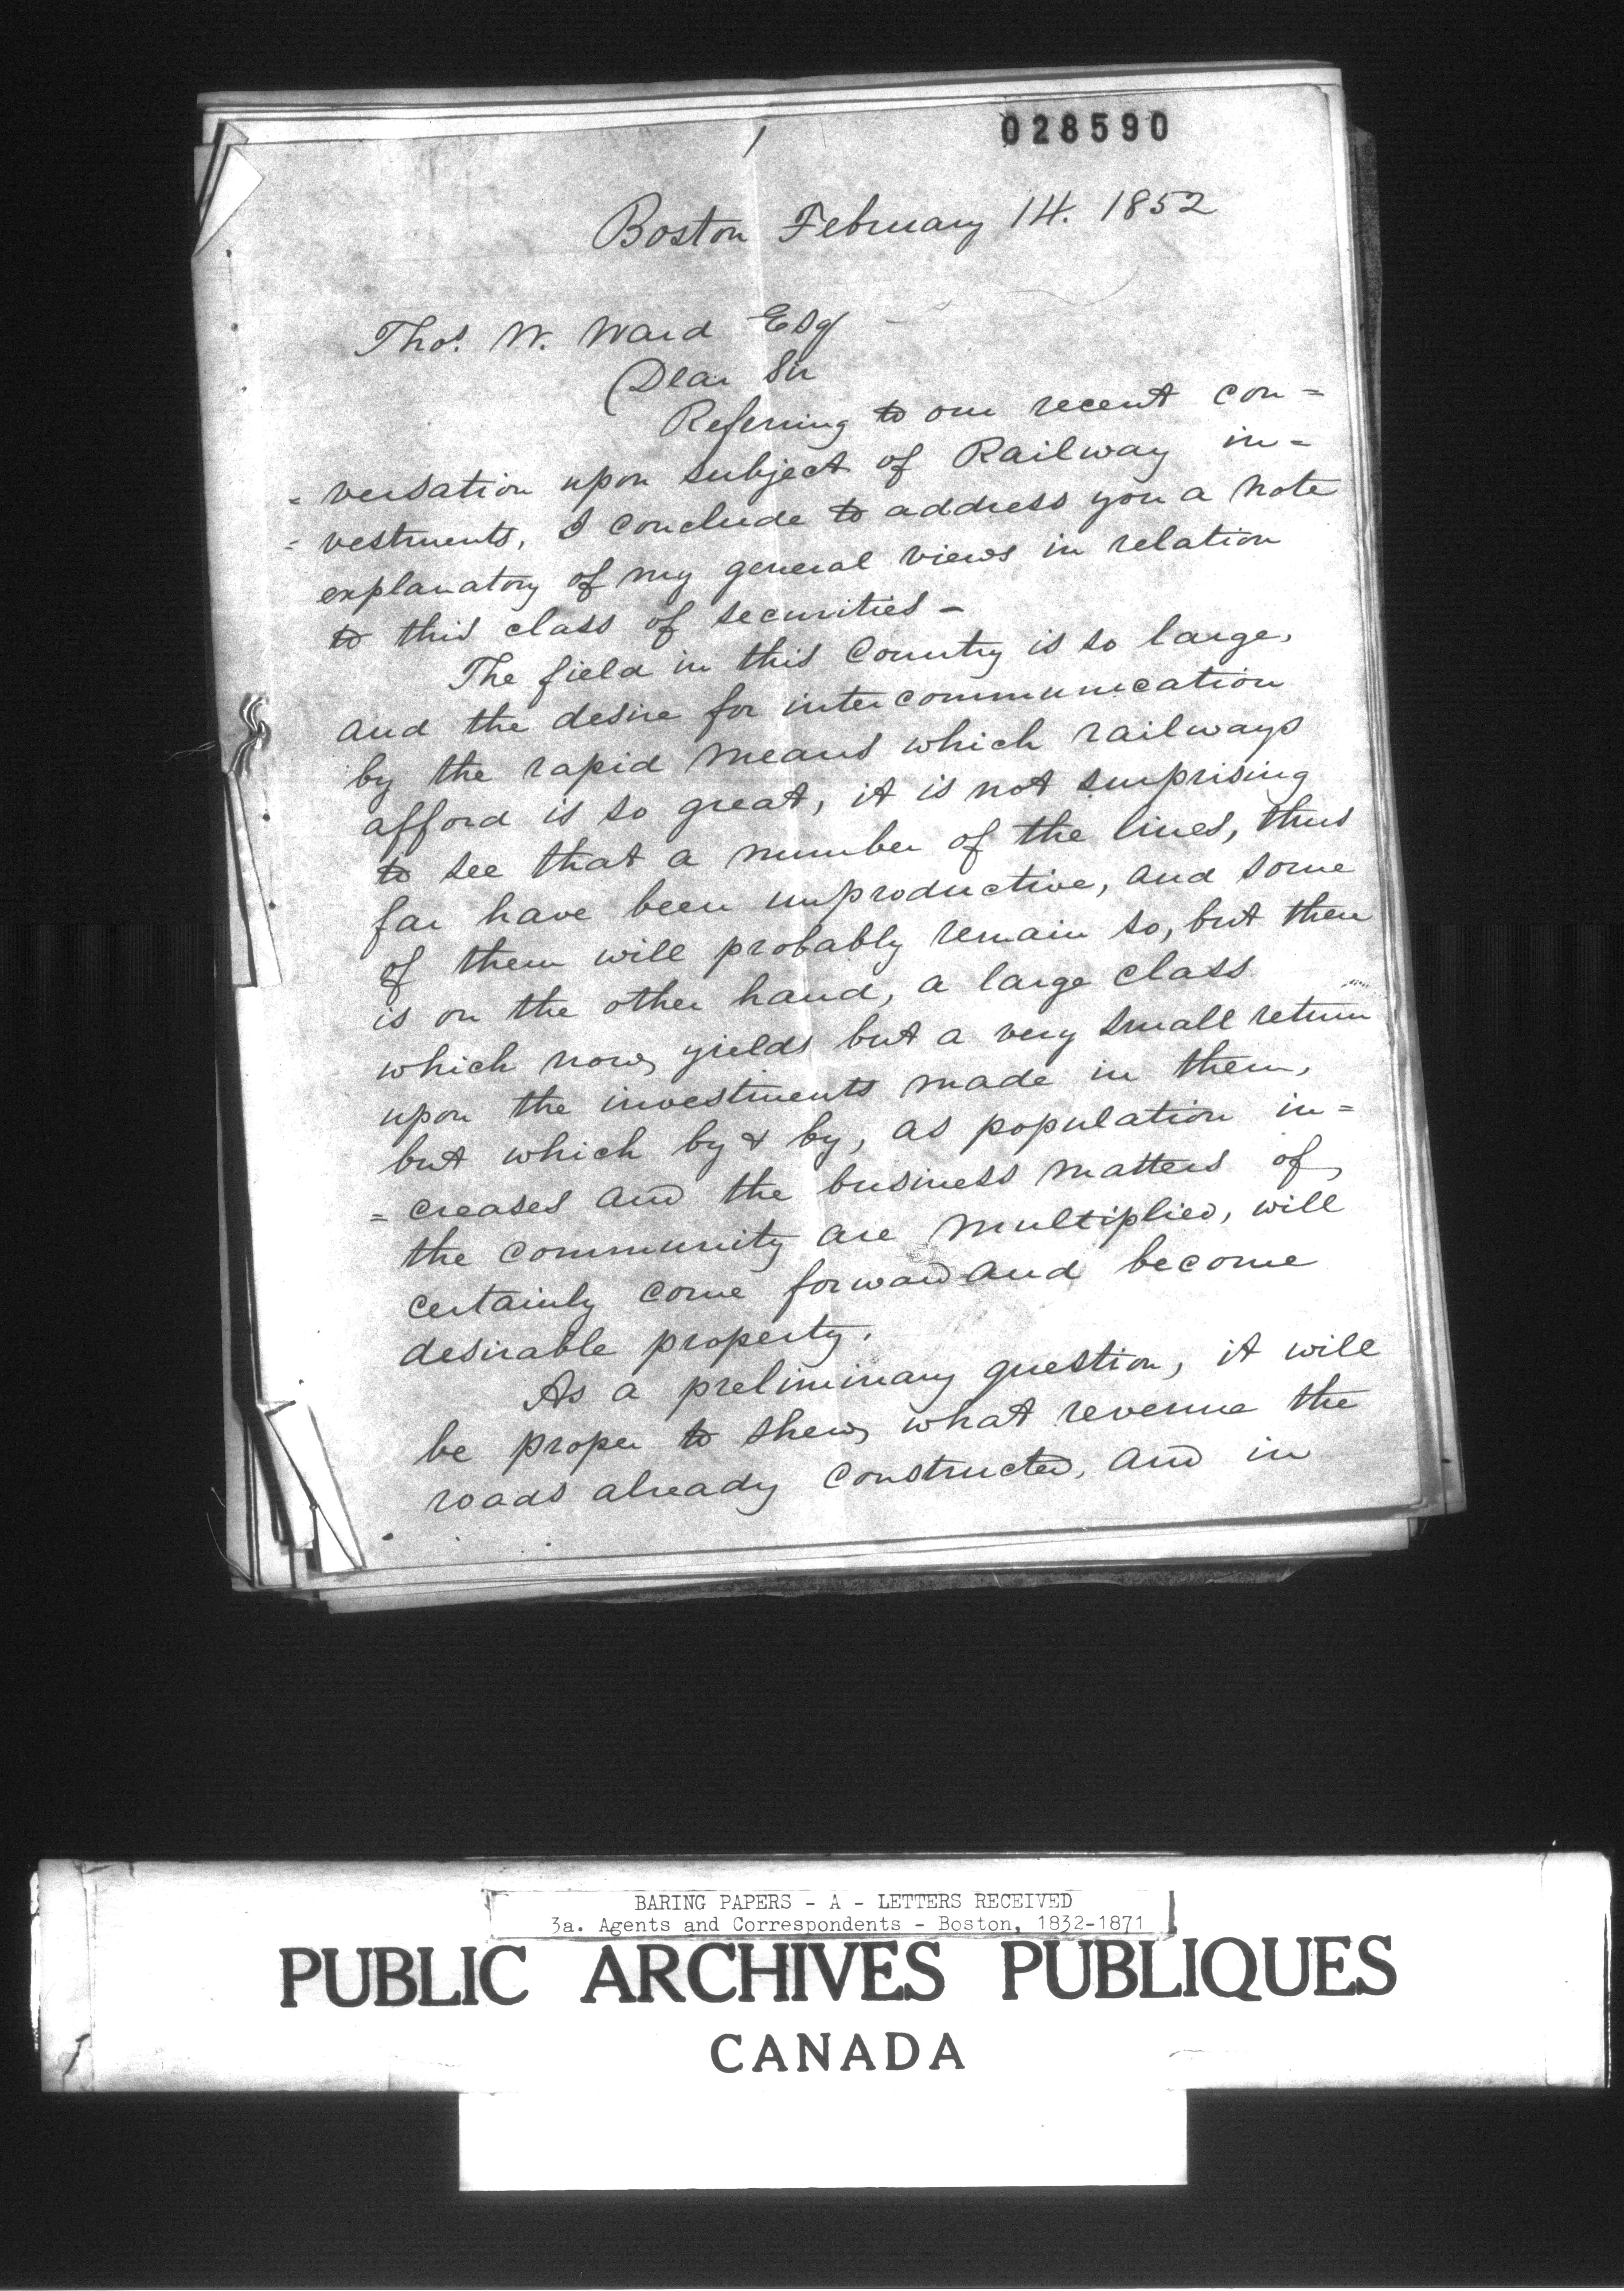 1
028590
Boston February 14. 1852
Thos. W. Ward Esq
Dear Sir
Referring to our recent con=
=versation upon subject of Railway in=
=vestments, I conclude to address you a note
explanatory of my general views in relation
to this class of securities -
The field in this Country is so large,
and the desire for intercommunication
by the rapid means which railways
afford is so great, it is not surprising
to see that a number of the lines, thus
far have been unproductive, and some
of them will probably remain so, but there
is on the other hand, a large class
which now yields but a very small return
upon the investments made in them,
but which by & by, as population in=
=creases and the business matters of
the community are multiplied, will
certainly come forward and become
desirable property.
As a preliminary question, it will
be proper to shew what revenue the
roads already constructed, and in
BARING PAPERS - A - LETTERS RECEIVED
3a. Agents and Correspondents - Boston, 1832-1871
PUBLIC ARCHIVES PUBLIQUES
CANADA